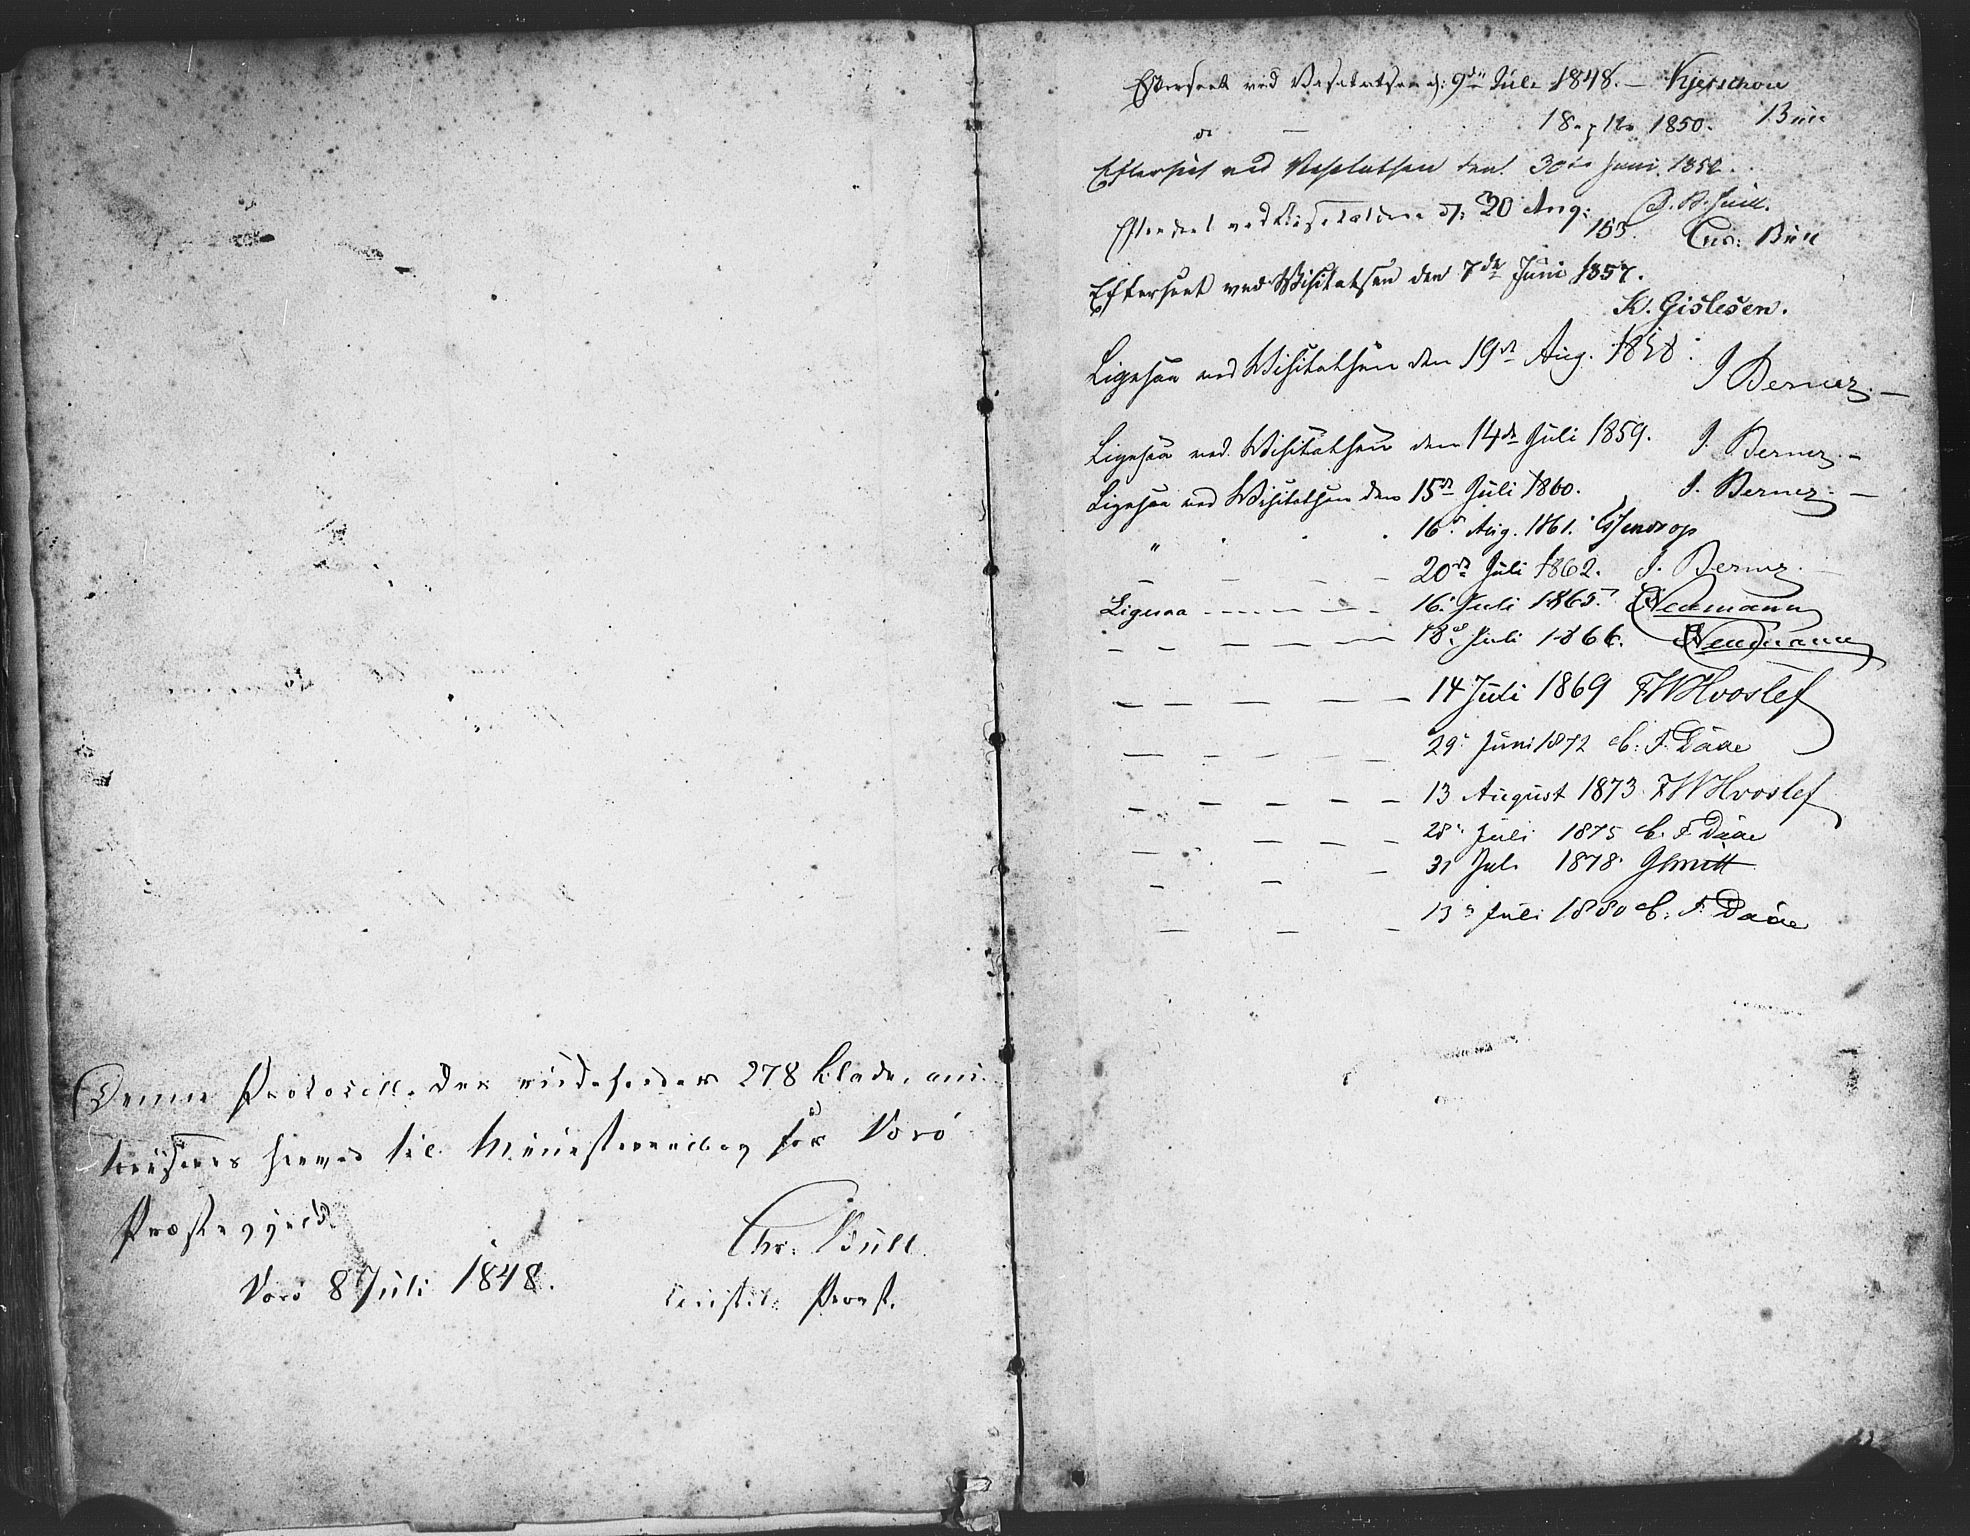 Denne Protokoll, der indeholder 278 Blade, au-
toriseres herved til Ministerialbog for Værö
Præstegjeld.
Værö 8 Juli 1848.
Chr. Bull
constit. Provst.
Efterseet ved Visitatsen d: 9de Juli 1848. – Kjerschow
do – 1850. Bull
Efterseet ved Visitatsen den 30te Juni 185
Efterseet ved Visitatsen d: 20 Aug:
153. Chr: Bull
Efterseet ved Visitatsen den 7de Juni 1857.
K. Gislesen.
Ligesaa ved Visitathsen den 19de Aug. 1858. J Berner. –
Ligesaa ved Visitathsen den 14de Juli 1859. J. Berner. –
Ligesaa ved Visitathsen den 15de Juli 1860. J. Berner. –
" 16de Aug. 1861.
– – – – 20de Juli 1862. J. Berner. –
Ligesaa – – – – 16. Juli 1865. Neumann
– – – – – 18de Juli 1866. Neumann
– – – – – 14 Juli 1869 FWHvoslef
– – – – – 29. Juni 1872 C. F. Daae
– – – – – 13 August 1873 FWHvoslef
– – – – 28. Juli 1875 C. F. Daae
– – – 31 Juli 1878. Smitt
– – – 13. Juli 1880 C. F. Daae